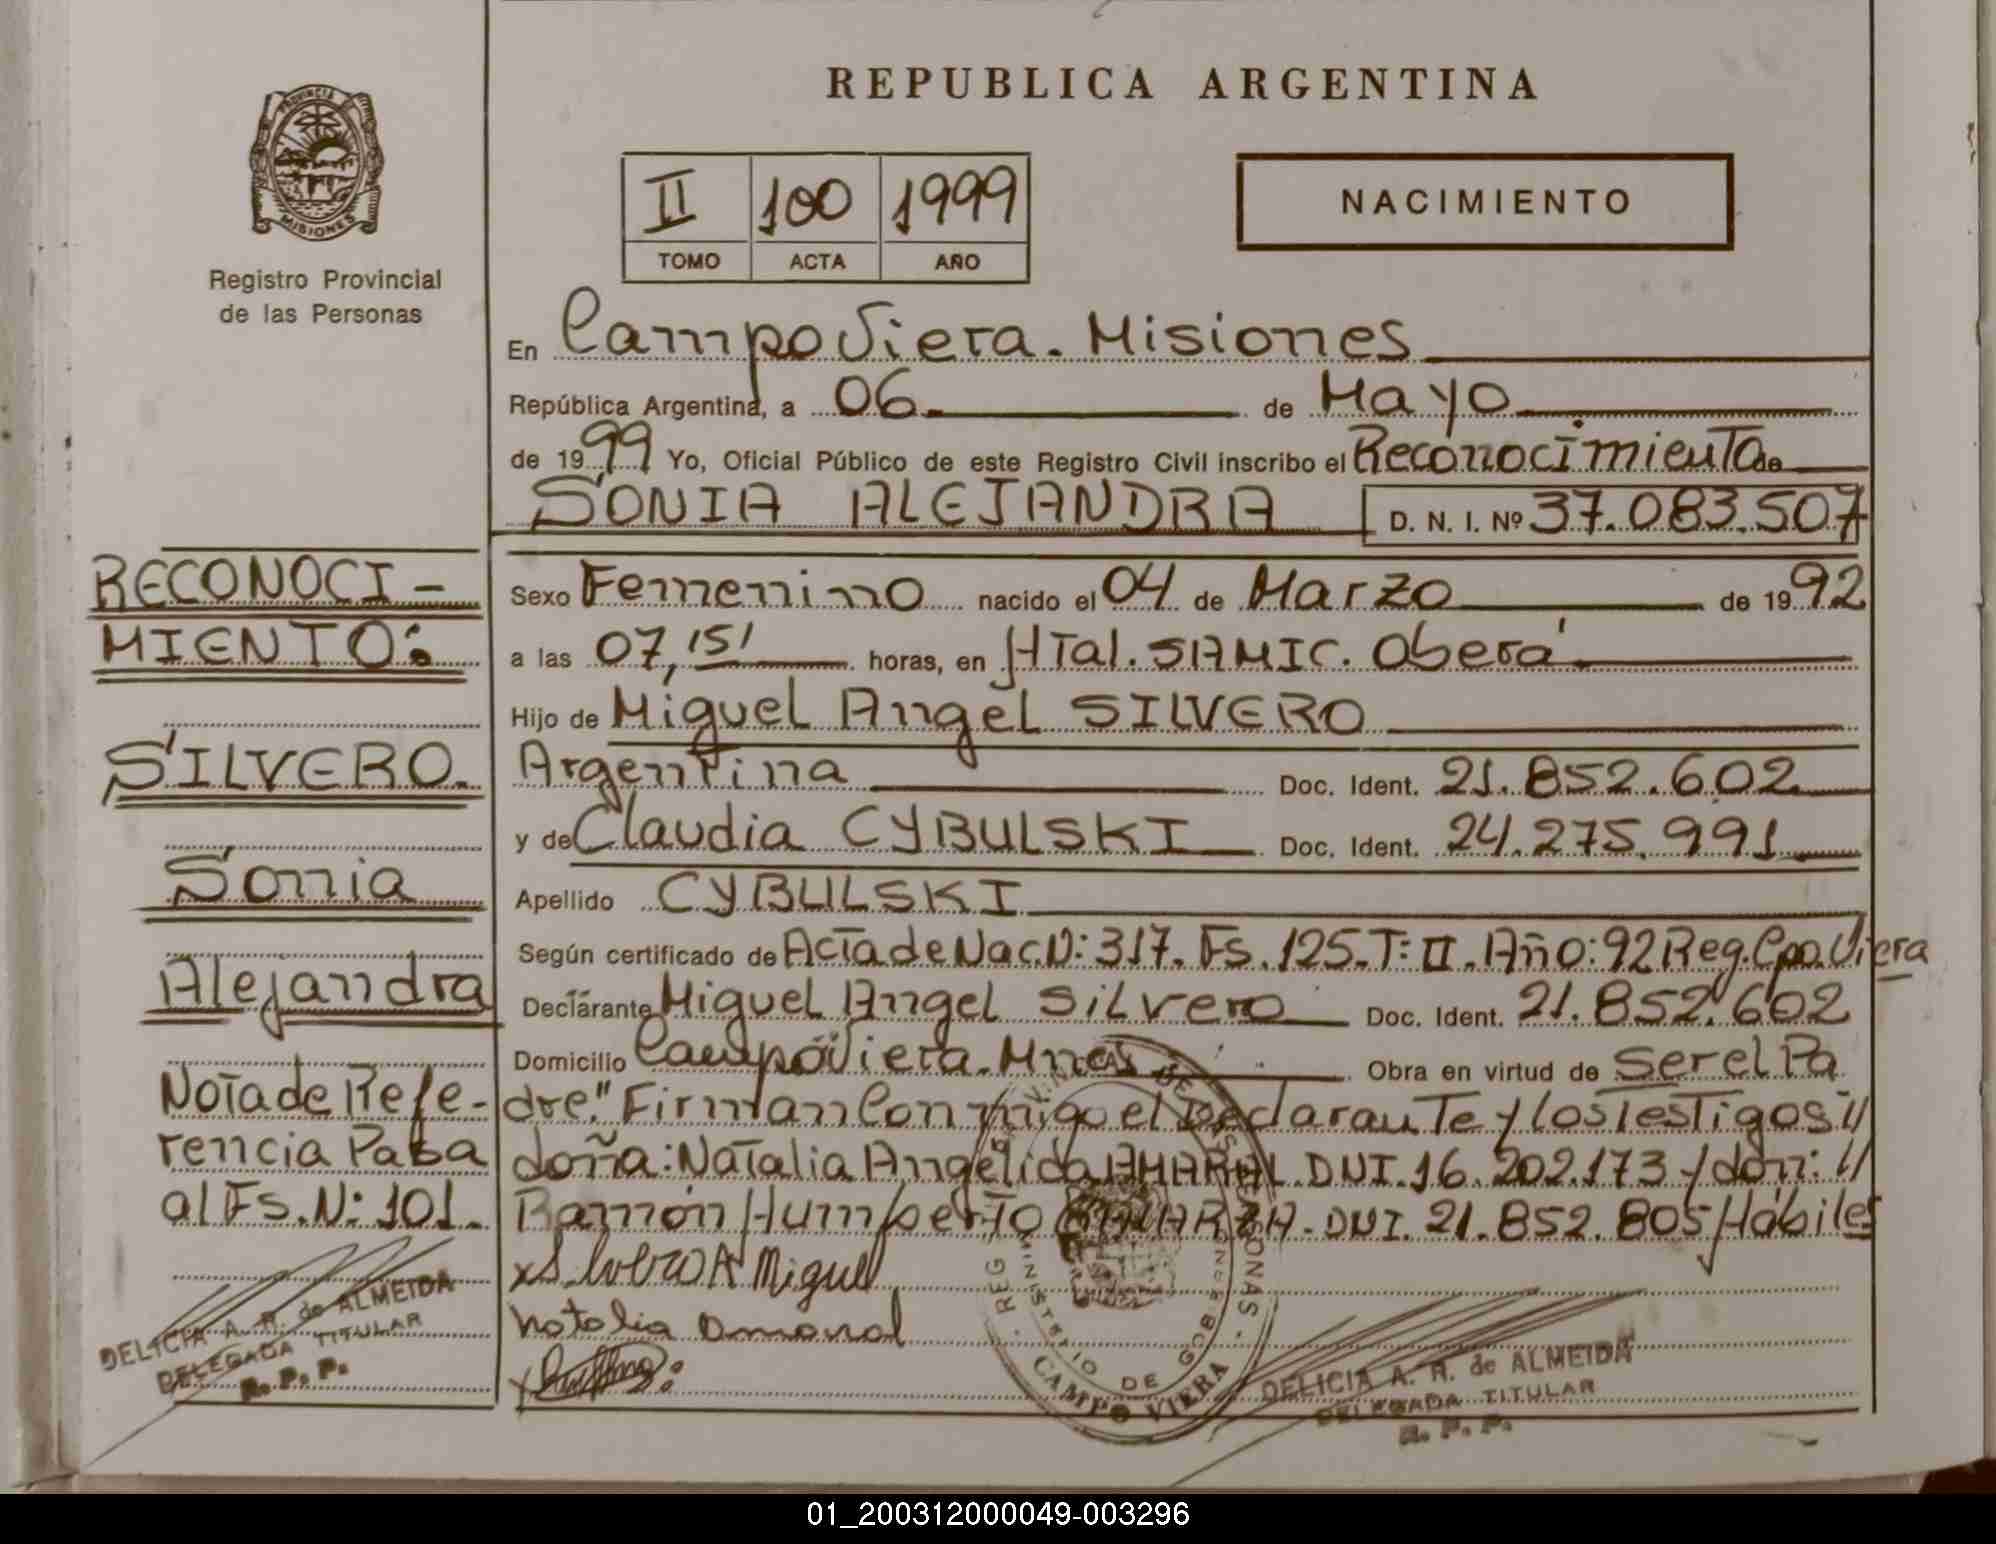 REPUBLICA ARGENTINA
PROVINCIA DE MISIONES
Registro Provincial
de las Personas
II 100 1999
TOMO ACTA AÑO
NACIMIENTO
En Campo Viera. Misiones
República Argentina, a 06 de Mayo
de 1999 Yo, Oficial Público de este Registro Civil inscribo el Reconocimiento de
SONIA ALEJANDRA D. N. I. Nº 37.083.507
Sexo Femenino nacido el 04 de Marzo de 1992
a las 07,15' horas, en HTal. SAMIC. Oberá
Hijo de Miguel Angel SILVERO
Argentina Doc. Ident. 21.852.602
y de Claudia CYBULSKI Doc. Ident. 24.275.991
Apellido CYBULSKI
Según certificado de Acta de Nac. N: 317. Fs. 125. T: II. Año: 92 Reg. Cpo. Viera
Declarante Miguel Angel Silvero Doc. Ident. 21.852.602
Domicilio Campo Viera. Mnes Obra en virtud de Ser el Pa
dre." Firman Conmigo el Declarante y los Testigos //
doña: Natalia Angélica AMARAL. DNI. 16.202.173 y don: //
Ramón Humberto DNI. 21.852.805 Hábiles
x Silvero A Miguel
Natalia Amaral
RECONOCI-
MIENTO:
SILVERO.
Sonia
Alejandra
Nota de Refe-
rencia Pasa
al Fs. N: 101.
DELICIA A. R. de ALMEIDA
DELEGADA TITULAR
R. P. P.
REG. PROVINCIAL DE LAS PERSONAS
MINISTERIO DE GOBIERNO
CAMPO VIERA
DELICIA A. R. de ALMEIDA
DELEGADA TITULAR
R. P. P.
01_200312000049-003296